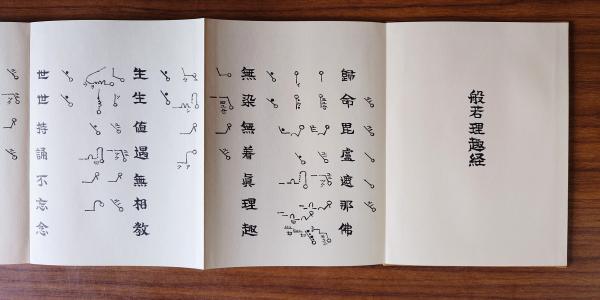 般若理趣経
歸命毘盧遮那佛
無染無着眞理趣
生生値遇無相教
世世持誦不忘念